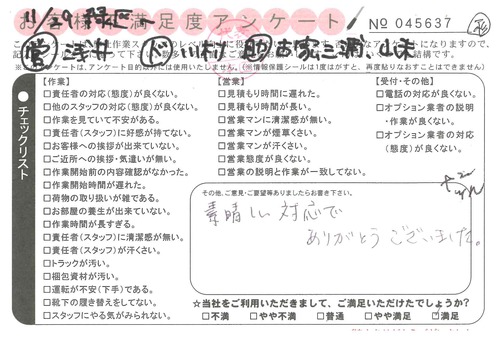 11/29 緑区
お客様満足度アンケート No 045637
営 浅井 ド
※アンケートは、アンケート目的以外には使用いたしません。(※情報保護シールは1度はがすと、再度貼りなおすことはできません)
●チェックリスト
【作業】
□責任者の対応(態度)が良くない。
□他のスタッフの対応(態度)が良くない。
□作業を見ていて不安がある。
□責任者(スタッフ)に好感が持てない。
□お客様への挨拶が出来ていない。
□ご近所への挨拶・気遣いが無い。
□作業開始前の内容確認がなかった。
□作業開始時間が遅れた。
□荷物の取り扱いが雑である。
□お部屋の養生が出来ていない。
□作業時間が長すぎる。
□責任者(スタッフ)に清潔感が無い。
□責任者(スタッフ)が汗くさい。
□トラックが汚い。
□梱包資材が汚い。
□運転が不安(下手)である。
□靴下の履き替えをしてない。
□スタッフにやる気がみられない。
【営業】
□見積もり時間に遅れた。
□見積もり時間が長い。
□営業マンに清潔感が無い。
□営業マンが煙草くさい。
□営業マンが汗くさい。
□営業態度が良くない。
□営業の説明と作業が一致してない。
【受付・その他】
□電話の対応が良くない。
□オプション業者の説明・作業が良くない。
□オプション業者の対応(態度)が良くない。
その他、ご意見・ご要望等ありましたらお書き下さい。
素晴しい対応で
ありがとうございました。
☆当社をご利用いただきまして、ご満足いただけたでしょうか?
□不満 □やや不満 □普通 □やや満足 □満足